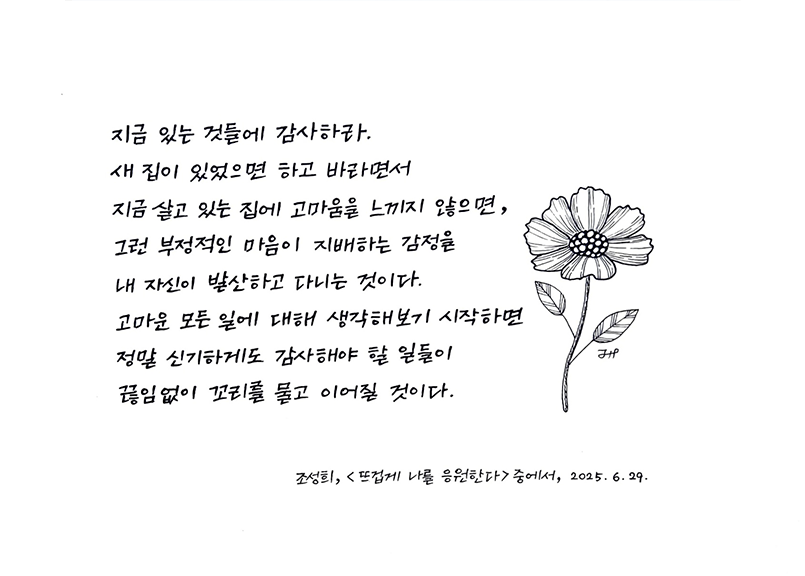 지금 있는 것들에 감사하라.
새 집이 있었으면 하고 바라면서
지금 살고 있는 집에 고마움을 느끼지 않으면,
그런 부정적인 마음이 지배하는 감정을
내 자신이 발산하고 다니는 것이다.
고마운 모든 일에 대해 생각해보기 시작하면
정말 신기하게도 감사해야 할 일들이
끊임없이 꼬리를 물고 이어질 것이다.
JHP
조성희, <뜨겁게 나를 응원한다> 중에서, 2025. 6. 29.